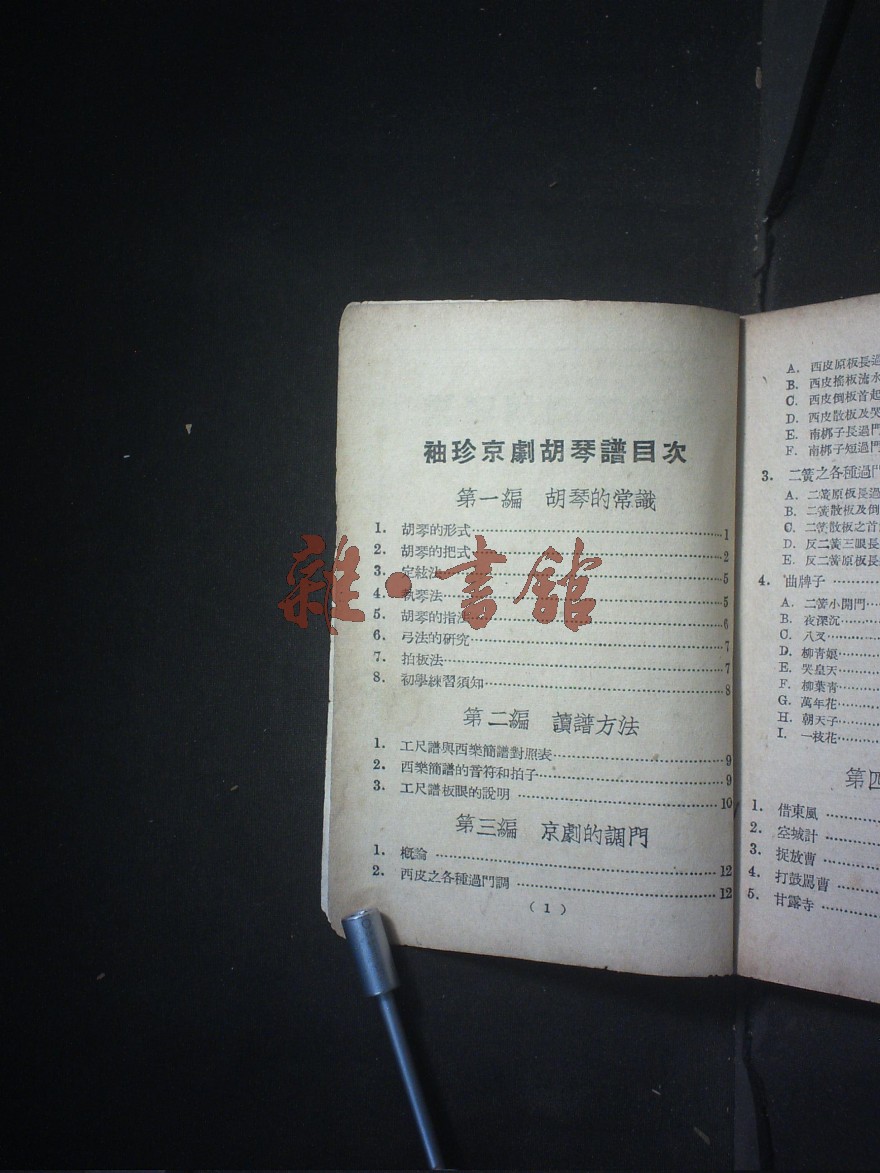 袖珍京劇胡琴譜目次
第一編 胡琴的常識
1. 胡琴的形式……1
2. 胡琴的把式……2
3. 定絃法……5
4. 執琴法……5
5. 胡琴的指法……6
6. 弓法的研究……7
7. 拍板法……7
8. 初學練習須知……8
第二編 讀譜方法
1. 工尺譜與西樂簡譜對照表……9
2. 西樂簡譜的音符和拍子……9
3. 工尺譜板眼的說明……10
第三編 京劇的調門
1. 概論……12
2. 西皮之各種過門調……12
(1)
A. 西皮原板長過
B. 西皮搖板流水
C. 西皮倒板首起
D. 西皮散板及哭
E. 南梆子長過門
F. 南梆子短過門
3. 二簧之各種過門
A. 二簧原板長過
B. 二簧散板及倒
C. 二簧散板之首
D. 反二簧三眼長
E. 反二簧原板長
4. 曲牌子……
A. 二簧小開門……
B. 夜深沉……
C. 八叉……
D. 柳青娘……
E. 哭皇天……
F. 柳葉青……
G. 萬年花……
H. 朝天子……
I. 一枝花……
第四
1. 借東風……
2. 空城計……
3. 捉放曹……
4. 打鼓罵曹……
5. 甘露寺……
雜·書館